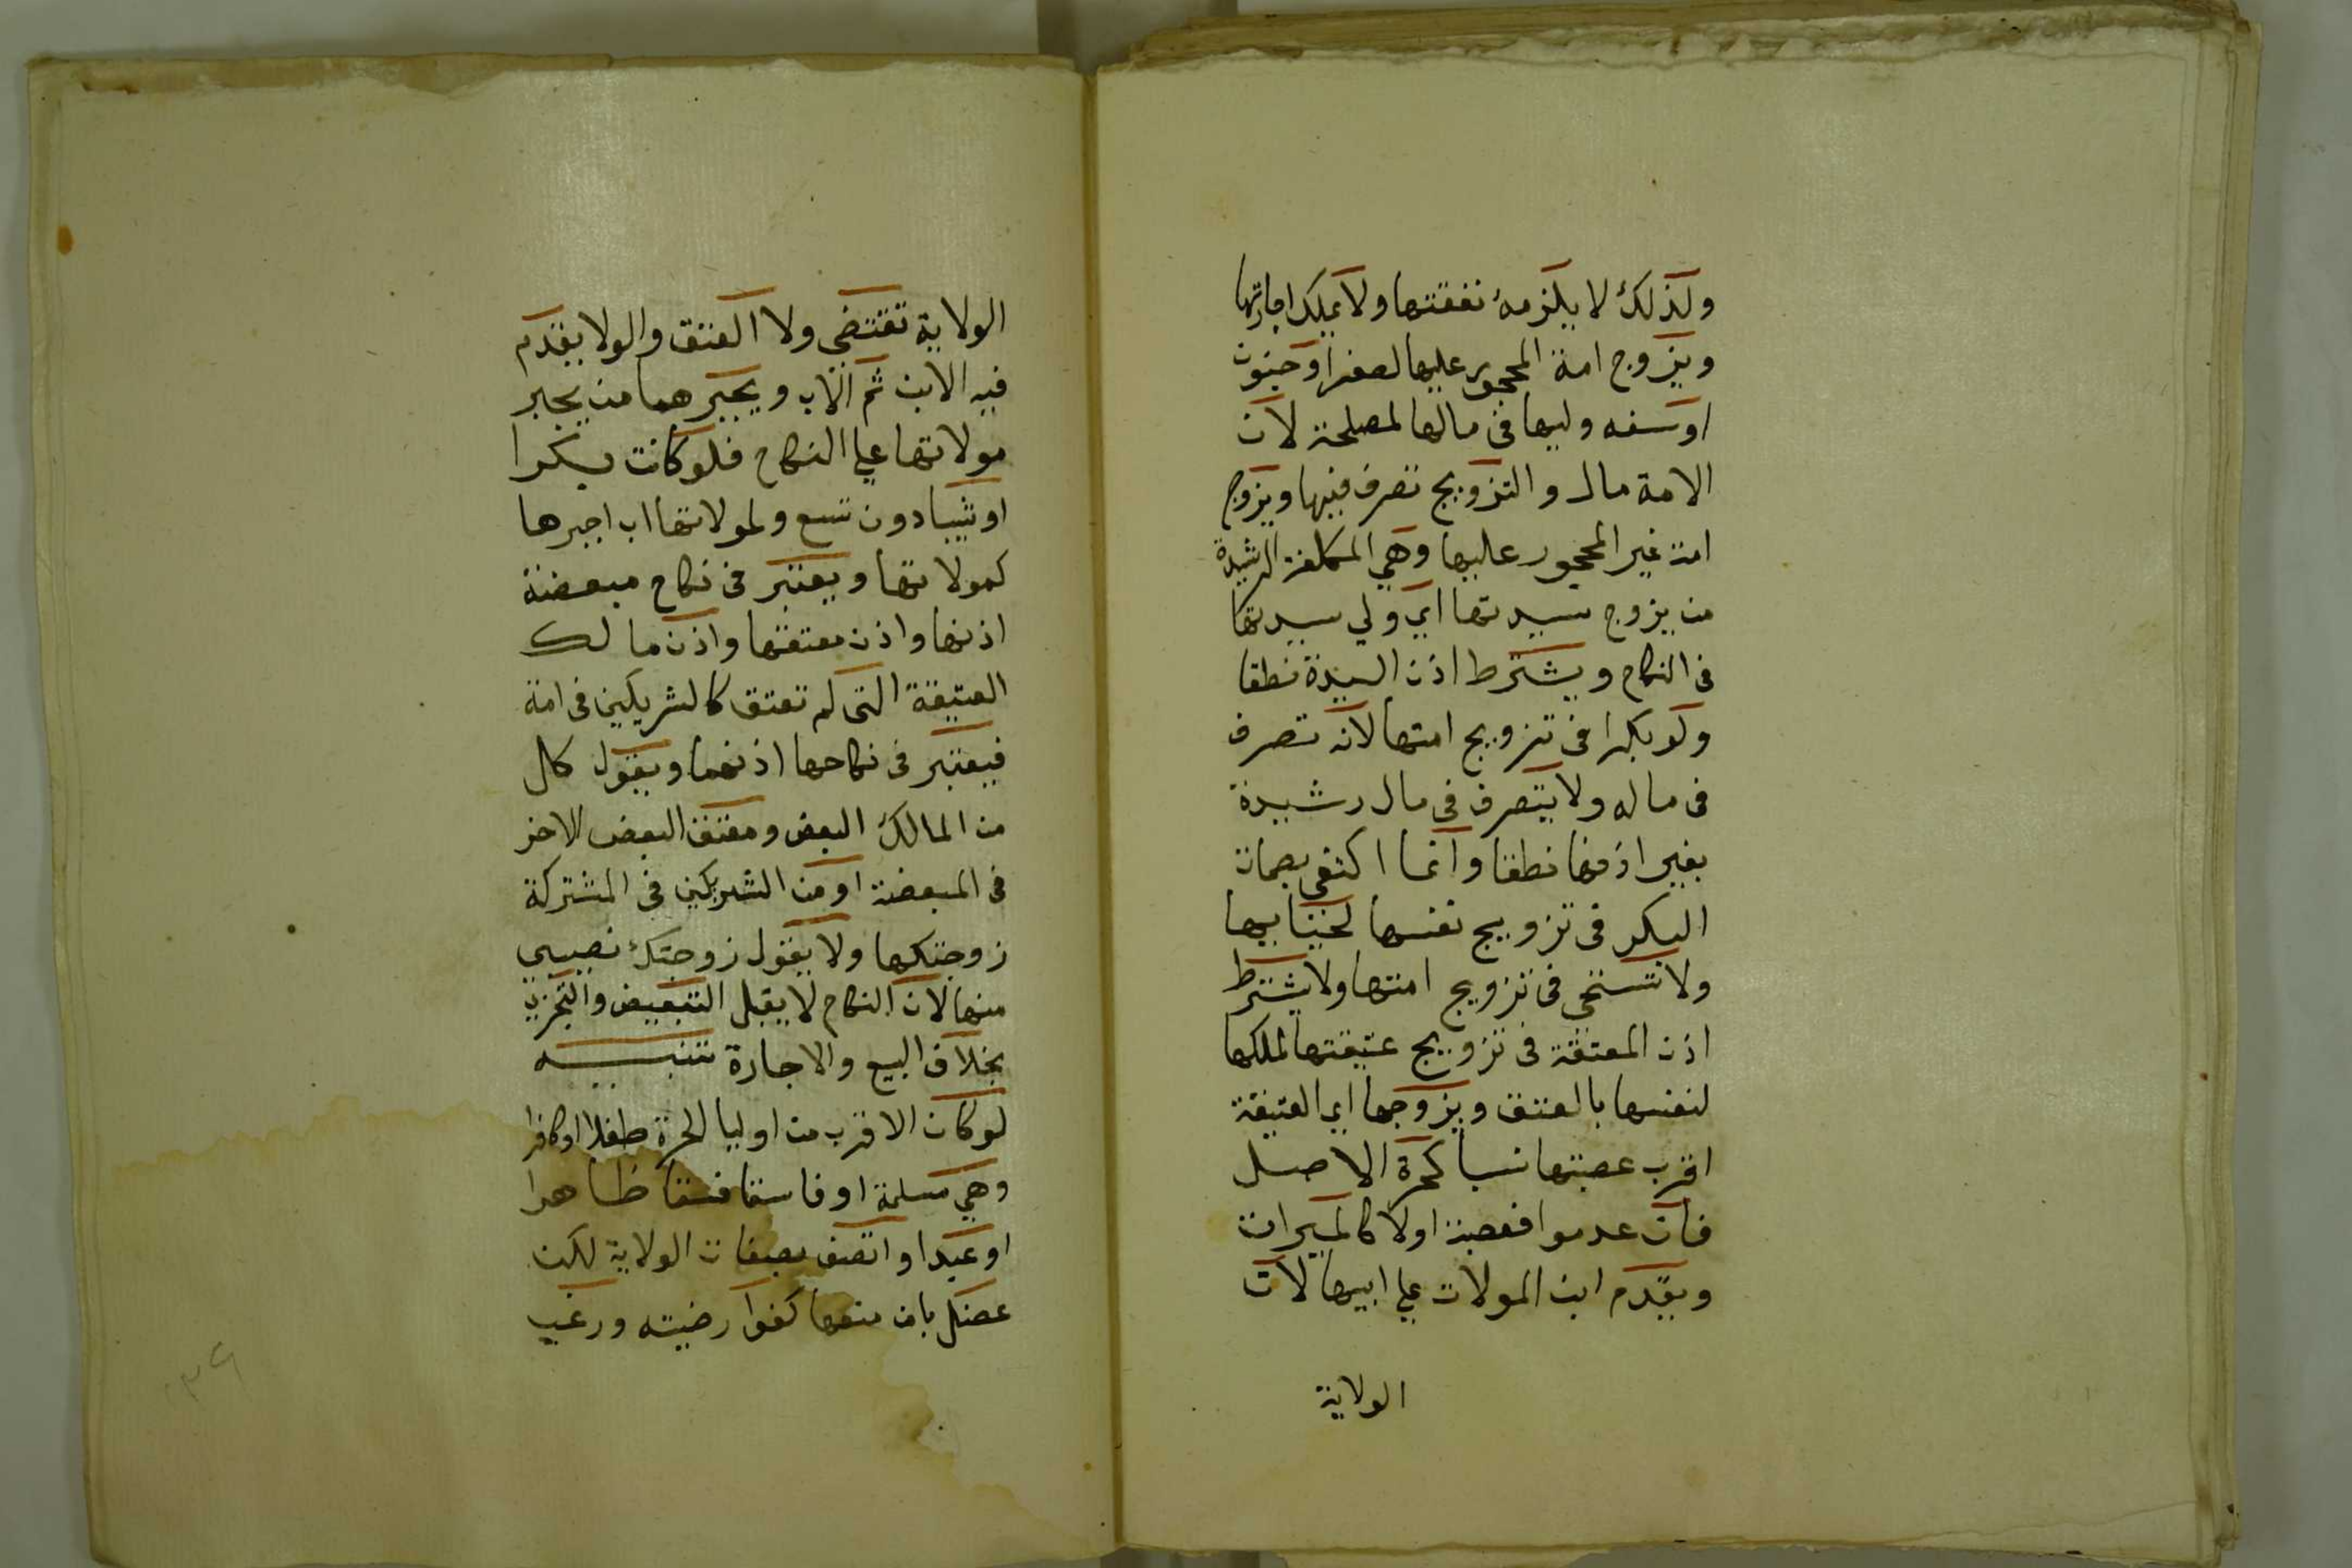 ولذلك لا يلزمه نفقتها ولا يملك اجارتها
ويزوج امة المحجور عليها لصغر او جنون
او سفه وليها فى مالها لمصلحة لان
الامة مال والتزويج تصرف فيها ويزوج
امة غير المحجور عليها وهي المكلفة الرشيدة
من يزوج سيدتها اي ولي سيدتها
فى النكاح ويشترط اذن السيدة نطقا
ولو بكرا فى تزويج امتها لانه تصرف
فى ماله ولا يتصرف فى مال رشيدة
بغير اذنها نطقا وانما اكتفى بصمات
البكر فى تزويج نفسها لحيايها
ولا تستحي فى تزويج امتها ولا يشترط
اذن المعتقة فى تزويج عتيقتها لملكها
لنفسها بالعتق ويزوجها اي العتيقة
اقرب عصبتها نسبا كحرة الاصل
فان عدموا فعصبة الولا كالميراث
ويقدم ابن المولات علي ابيها لان
الولاية
الولاية تقتضي ولا العتق والولا يقدم
فيه الابن ثم الاب ويجبرهما من يجبر
مولاتها علي النكاح فلو كانت بكرا
او ثيبا دون تسع ولمولاتها اب اجبرها
كمولاتها ويعتبر فى نكاح مبعضة
اذنها واذن معتقتها واذن مالك
العتيقة التى لم تعتق كالشريكين فى امة
فيعتبر فى نكاحها اذنهما ويقول كل
من المالك البعض ومعتق البعض الاخر
فى المبعضة او من الشريكين فى المشتركة
زوجتكها ولا يقول زوجتك نصيبي
منها لان النكاح لا يقبل التبعيض والتجزي
بخلاف البيع والاجارة تنبيه
لو كان الاقرب من اوليا الحرة طفلا او كافرا
وهي مسلمة او فاسقا فسقا ظاهرا
او عبدا او اتصف بصفات الولاية لكن
عضل بان منعها كفوا رضيته ورغب